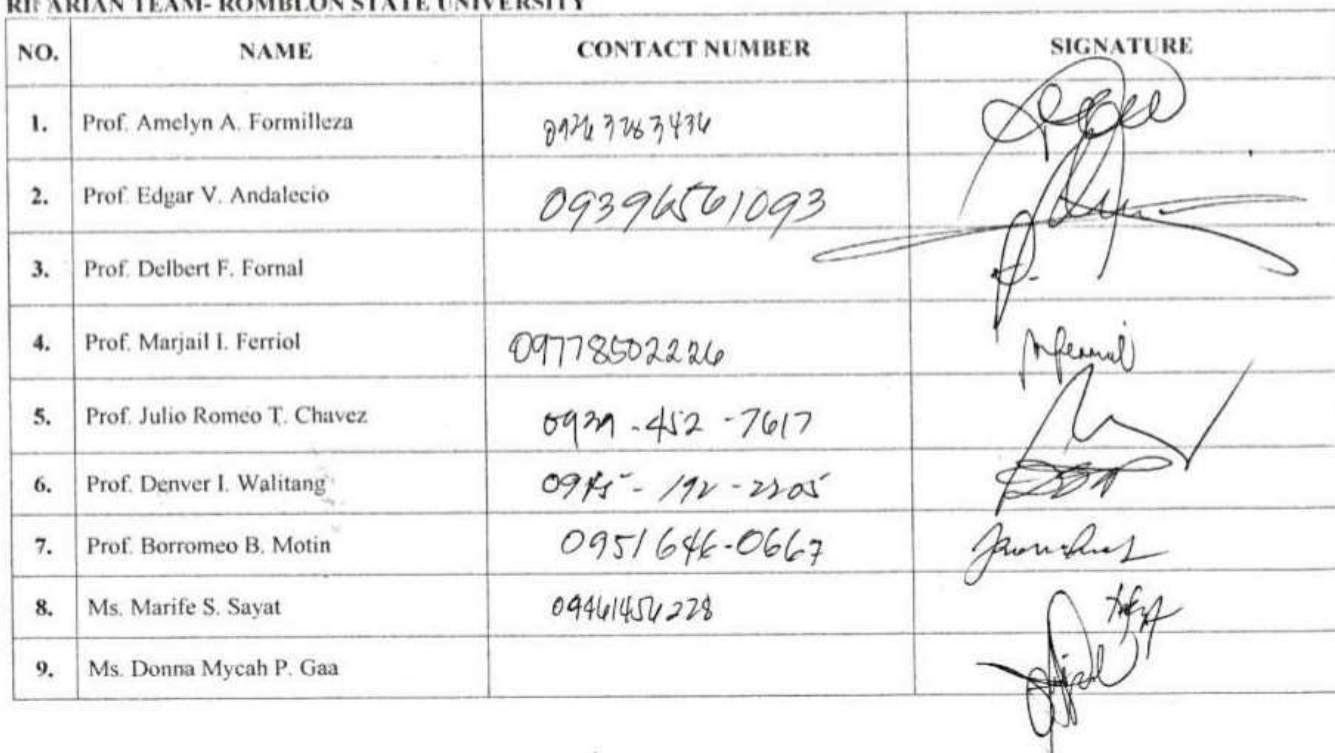 RIPARIAN TEAM- ROMBLON STATE UNIVERSITY
NO. NAME CONTACT NUMBER SIGNATURE
1. Prof. Amelyn A. Formilleza
2. Prof. Edgar V. Andalecio 09396561093
3. Prof. Delbert F. Fornal
4. Prof. Marjail I. Ferriol 09778502226
5. Prof. Julio Romeo T. Chavez 0939-452-7617
6. Prof. Denver I. Walitang
7. Prof. Borromeo B. Motin 0951646-0667
8. Ms. Marife S. Sayat 09461456228
9. Ms. Donna Mycah P. Gaa